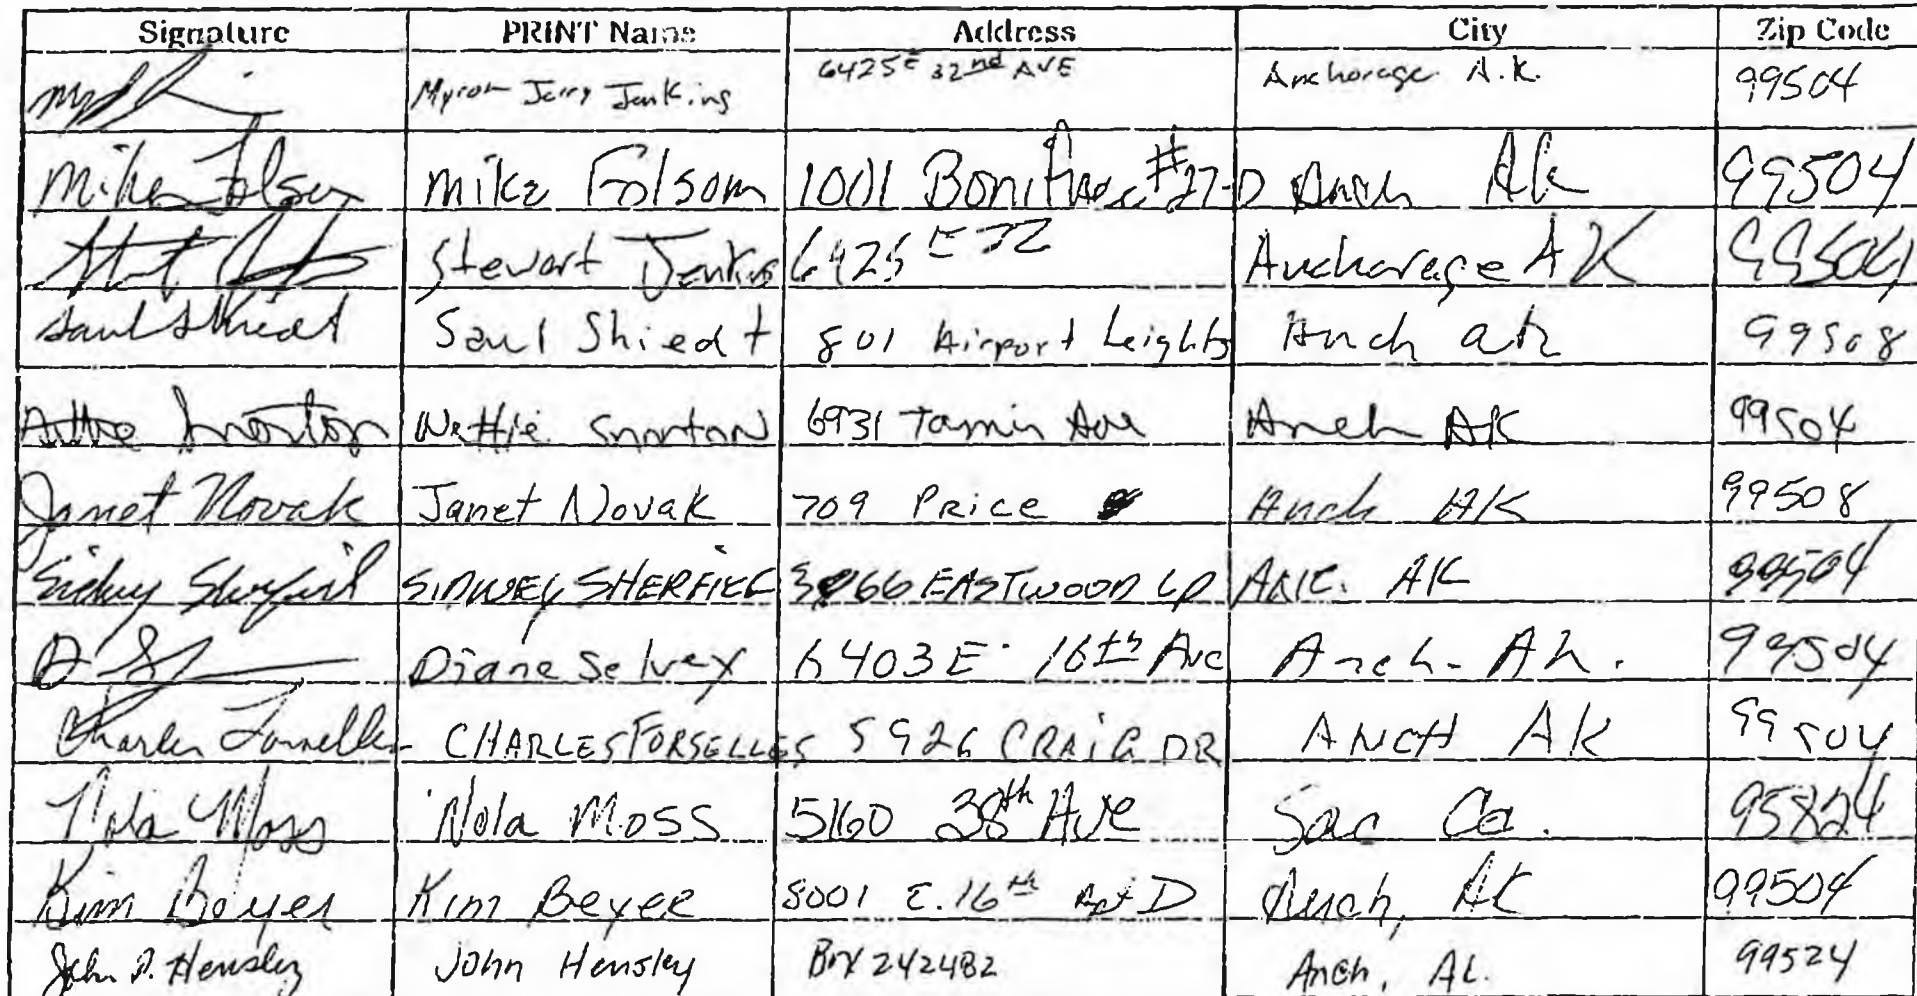 Signature PRINT Name Address City Zip Code
Myron Jerry Jenkins 6425 E 32nd AVE Anchorage A.K. 99504
Mike Folsom Mike Folsom 1001 Boniface #27-D Anch Ak 99504
Stewart Jenkins 6425 E 32 Anchorage AK 99504
Saul Shiedt Saul Shiedt 801 Airport heights Anch ak 99508
Nettie 6931 Tamir Ave Anch AK 99504
Janet Novak Janet Novak 709 Price Anch AK 99508
Sidney SIDNEY 3766 EASTWOOD LP ANC. AK 99504
Diane Selvey 6403 E. 16th Ave Anch- Ak. 99504
Charles Forselles CHARLES FORSELLES 5926 CRAIG DR ANCH AK 99504
Nola Moss Nola Moss 5160 38th Ave Sac Ca. 95824
Kim Beyer Kim Beyer 8001 E. 16th Apt D Anch, AK 99504
John D. Hensley John Hensley Box 242482 Anch, AK. 99524